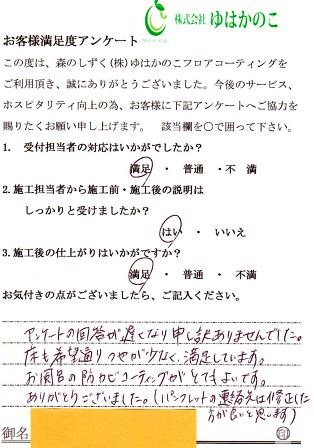 株式会社 ゆはかのこ
お客様満足度アンケート
この度は、森のしずく(株)ゆはかのこフロアコーティングを
ご利用頂き、誠にありがとうございました。今後のサービス、
ホスピタリティ向上の為、お客様に下記アンケートへご協力を
賜りたくお願い申し上げます。 該当欄を〇で囲って下さい。
1. 受付担当者の対応はいかがでしたか?
満足 ・ 普通 ・不 満
2.施工担当者から施工前・施工後の説明は
しっかりと受けましたか?
はい ・ いいえ
3.施工後の仕上がりはいかがですか?
満足 ・ 普通 ・ 不満
お気付きの点がございましたら、ご記入ください。
アンケートの回答が遅くなり申し訳ありませんでした。
床も希望通りつやが少なく、満足しています。
お風呂の防カビコーティングがとてもよいです。
ありがとうございました。(パンフレットの連絡先は修正した
方が良いと思います)
御名
印